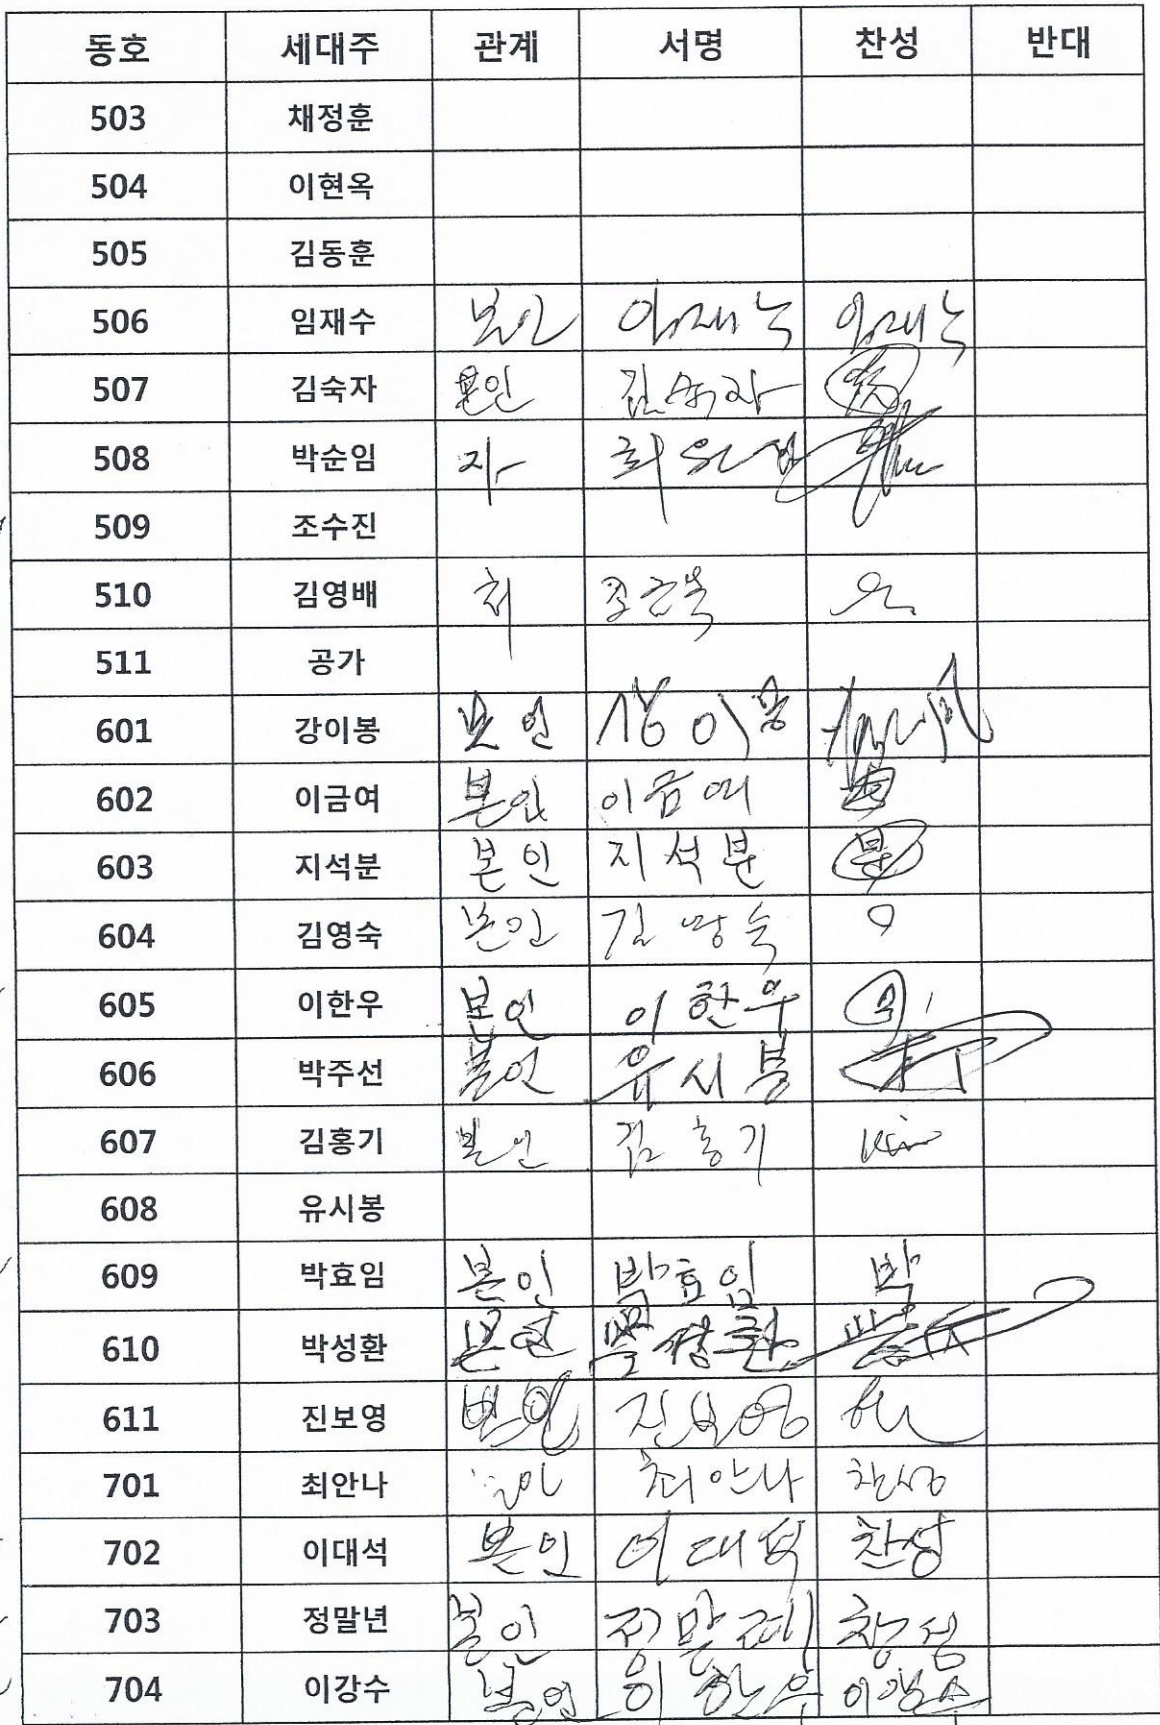 동호 세대주 관계 서명 찬성 반대
503 채정훈
504 이현옥
505 김동훈
506 임재수 본인 임재수 임재수
507 김숙자 본인 김숙자
508 박순임 자
509 조수진
510 김영배 처
511 공가
601 강이봉 본인 강이봉
602 이금여 본인 이금여
603 지석분 본인 지석분 분
604 김영숙 본인 김영숙
605 이한우 본인 이한우
606 박주선 본인 유시봉
607 김홍기 본인 김홍기 Kim
608 유시봉
609 박효임 본인 박효임 박
610 박성환 본인
611 진보영 본인 진보영
701 최안나 최안나 찬성
702 이대석 본인 이대석 찬성
703 정말년 본인 찬성
704 이강수 본인 이강수